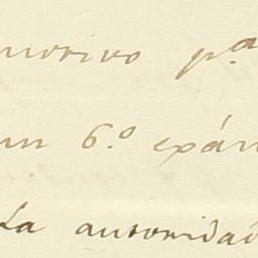 motivo pª
un 6.º exám
La autoridad